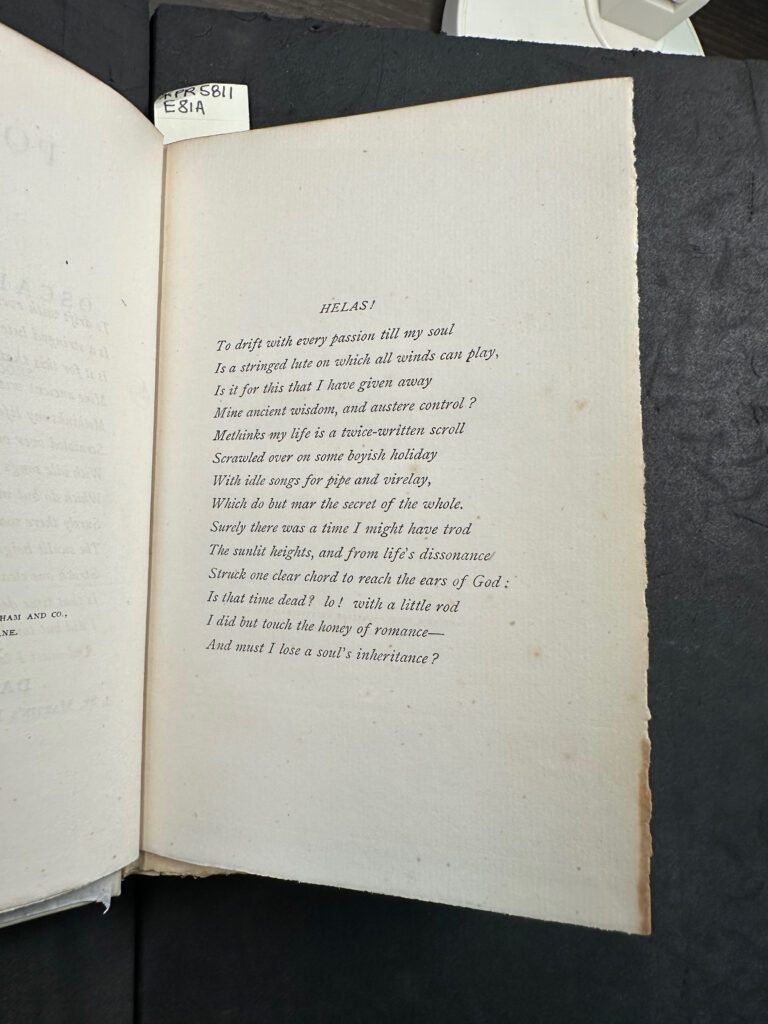 PR5811
E81A
HAM AND CO.,
NE.
HELAS!
To drift with every passion till my soul
Is a stringed lute on which all winds can play,
Is it for this that I have given away
Mine ancient wisdom, and austere control?
Methinks my life is a twice-written scroll
Scrawled over on some boyish holiday
With idle songs for pipe and virelay,
Which do but mar the secret of the whole.
Surely there was a time I might have trod
The sunlit heights, and from life's dissonance
Struck one clear chord to reach the ears of God:
Is that time dead? lo! with a little rod
I did but touch the honey of romance—
And must I lose a soul's inheritance?